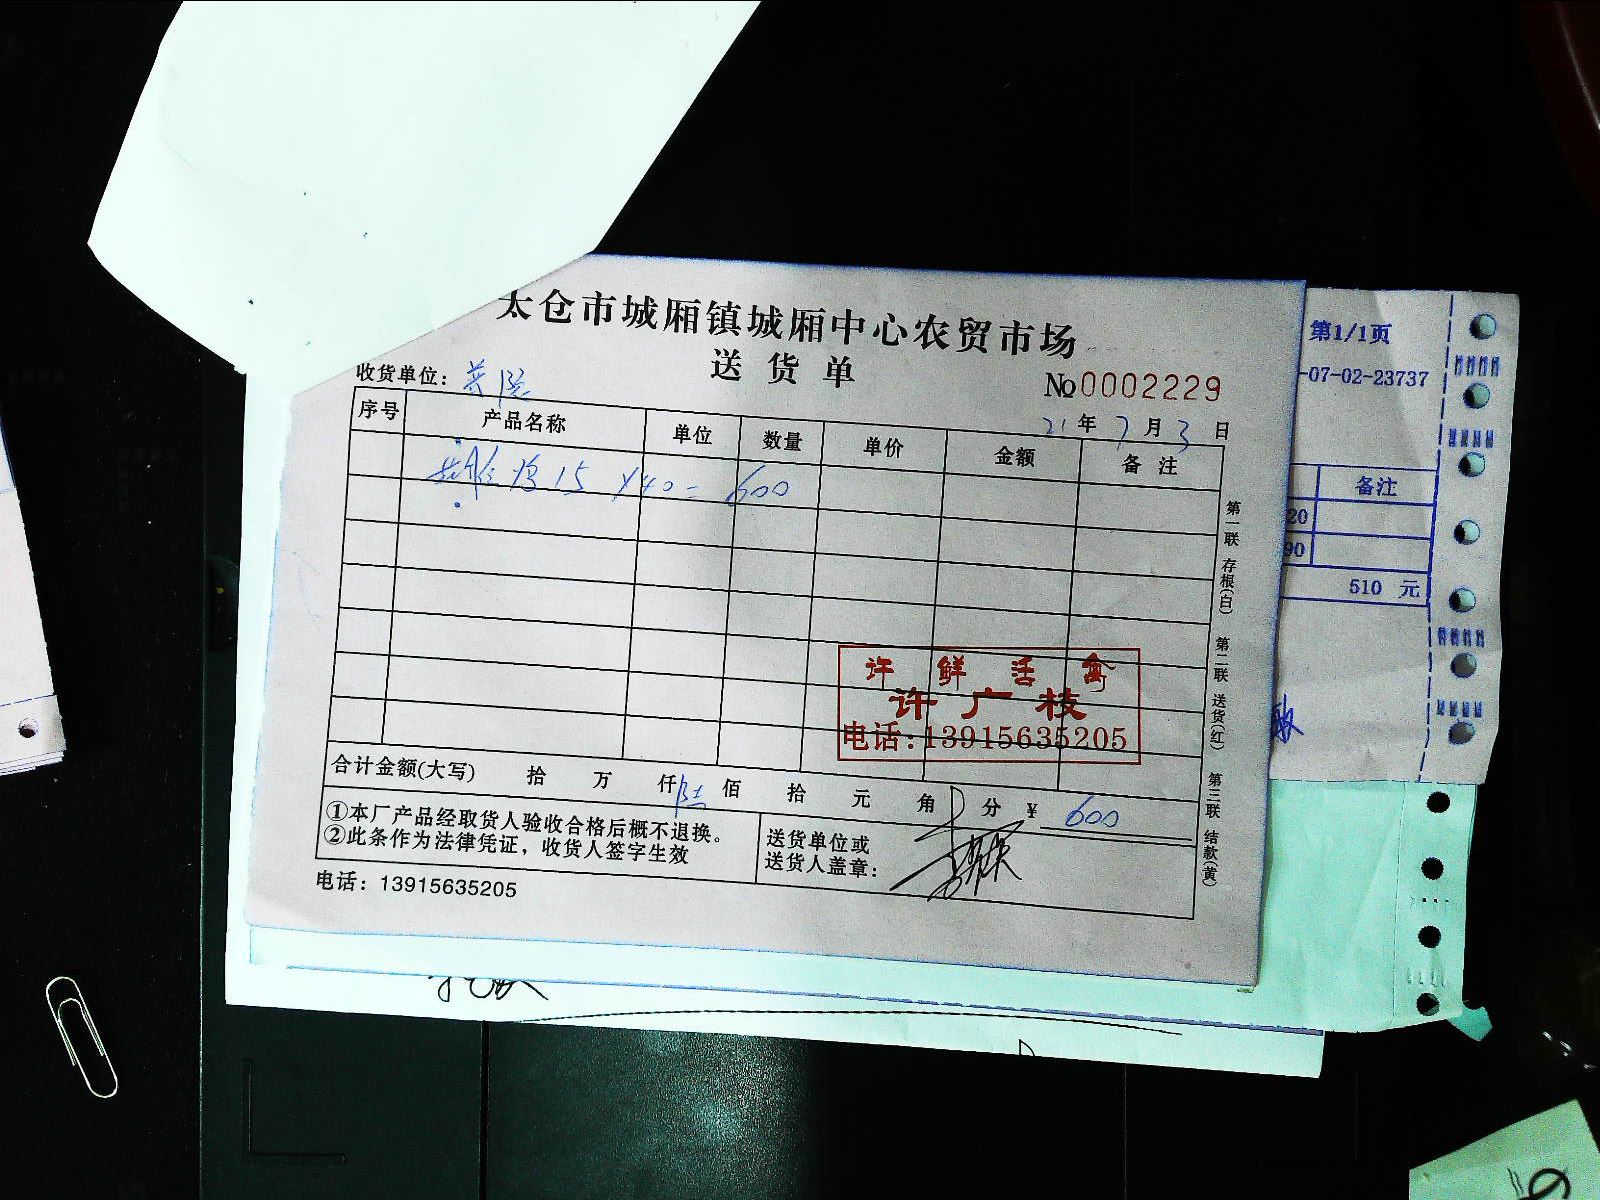 太仓市城厢镇城厢中心农贸市场
送货单
收货单位：
No 0002229
21年7月3日
序号 产品名称 单位 数量 单价 金额 备注
15 X40=600
第一联 存根(白) 第二联 送货(红) 第三联 结款(黄)
许鲜活禽
许广枝
电话:13915635205
合计金额(大写) 拾 万 仟 陆 佰 拾 元 角 分 ¥ 600
①本厂产品经取货人验收合格后概不退换。
②此条作为法律凭证，收货人签字生效
送货单位或
送货人盖章：
电话：13915635205
第1/1页
-07-02-23737
备注
20
90
510 元